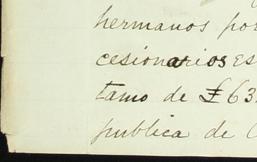 hermanos por
cesionarios Es
tamo de £63
publica de C